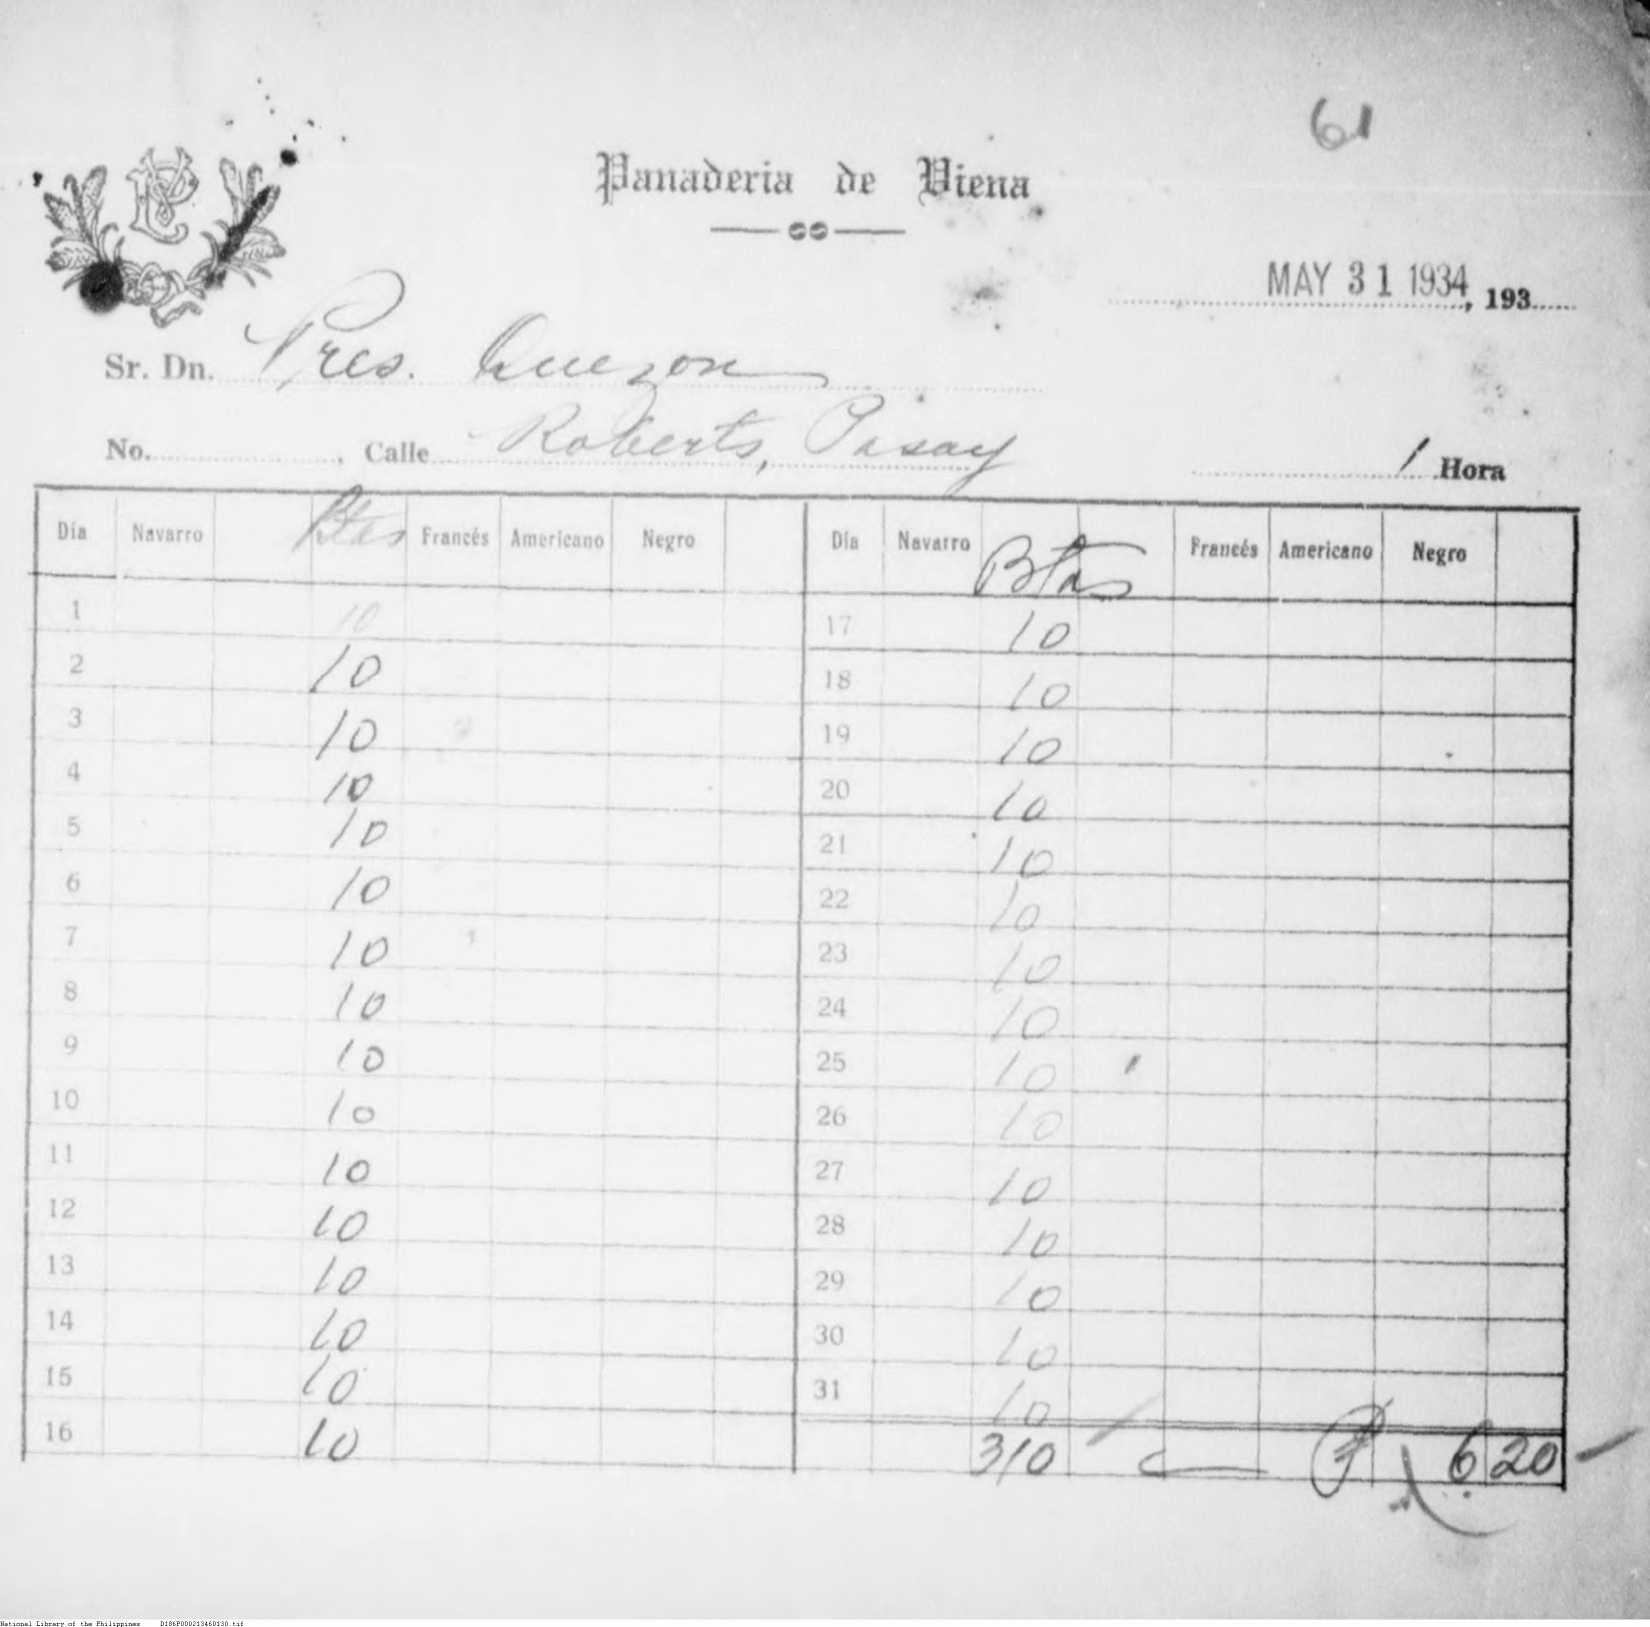 61
PV
Panaderia de Viena
MAY 31 1934, 193
Sr. Dn. Pres. Quezon
No. , Calle Roberts, Pasay 1 Hora
Día Navarro Btas Francés Americano Negro Día Navarro Btas Francés Americano Negro
1 10 17 10
2 10 18 10
3 10 19 10
4 10 20 10
5 10 21 10
6 10 22 10
7 10 23 10
8 10 24 10
9 10 25 10
10 10 26 10
11 10 27 10
12 10 28 10
13 10 29 10
14 10 30 10
15 10 31 10
16 10 310 ₱ 6 20
National Library of the Philippines D186P000213460130.tif